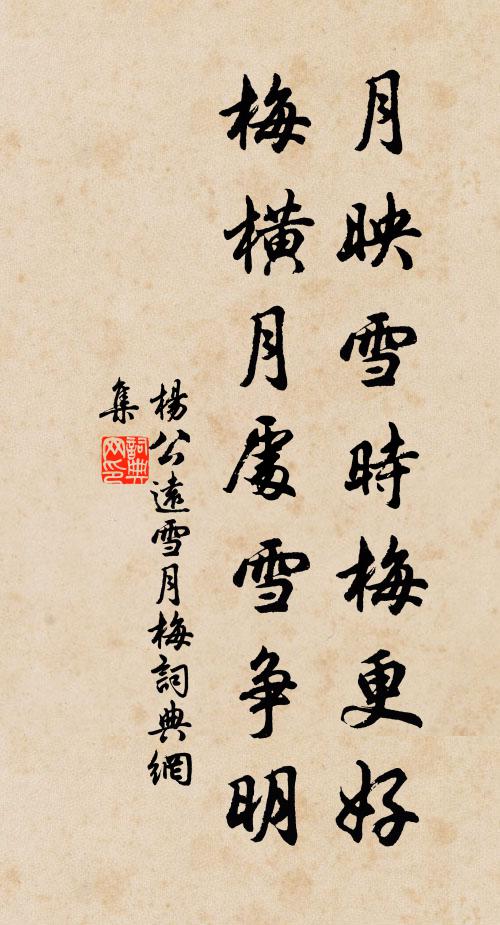 月映雪時梅更好
梅橫月處雪爭明
楊公遠雪月梅詞典網
集
詞典
网印